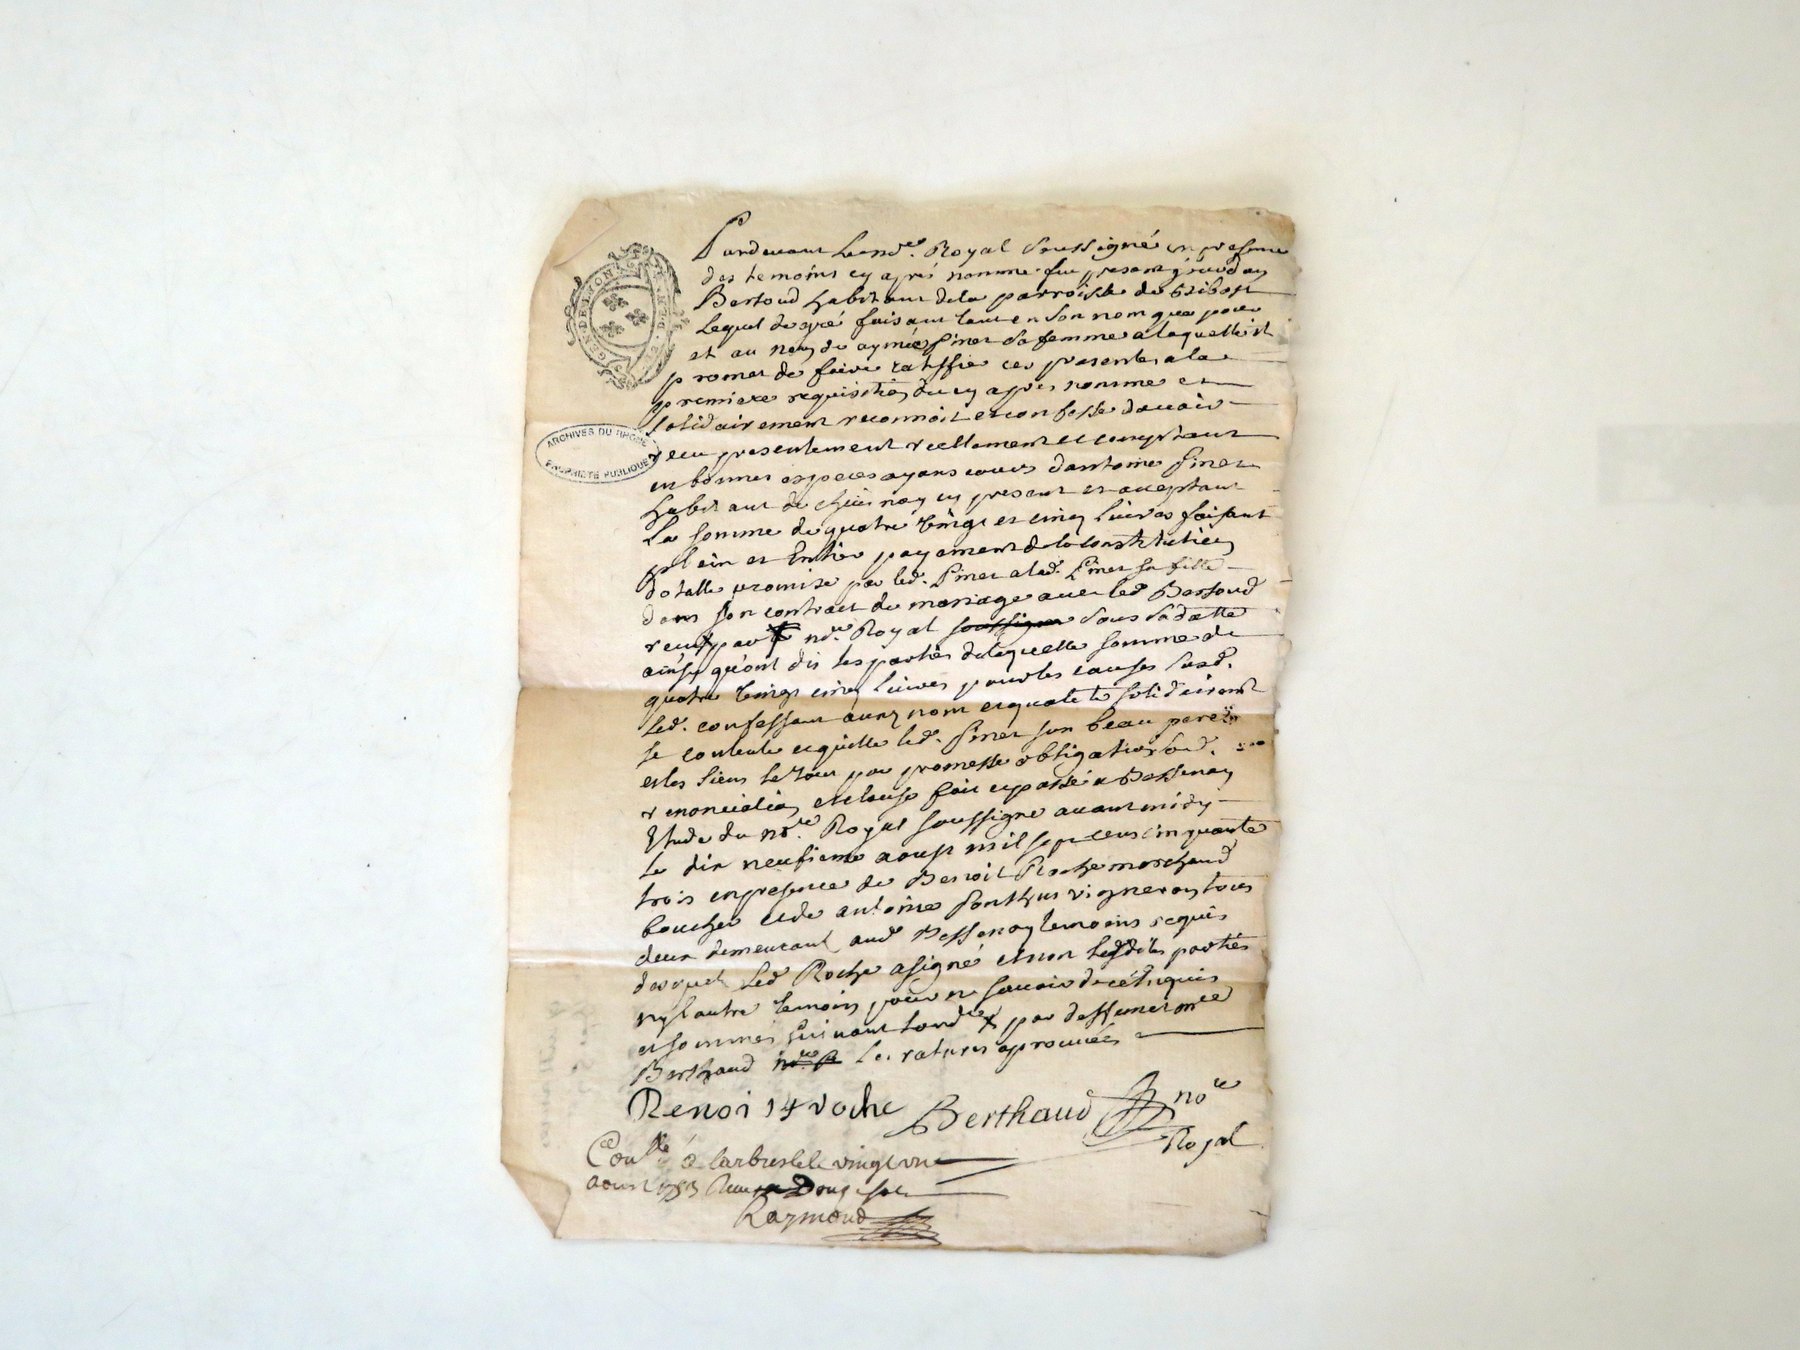 Pardevant le no.re Royal soussigné en presence
des temoins cy apres nommé fut present
Bertoud habitant de la parroisse de
Lequel de gré faisant tant en son nom que pour
et au nom de aymée Pinet sa femme a laquelle il
promet de faire ratiffie ces presentes a la
premiere requisition du cy apres nommé et
solidairement reconnoit et confesse d'avoir
receu presentement reellement et comptant
en bonnes especes ayans cours dantoine Pinet
habitant de cy present et acceptant
La somme de quatre vingt et cinq livres faisant
plein et Entier payement de la constitution
dotalle promise par led. Pinet a lad. Pinet sa fille
dans son contract de mariage avec led Bertoud
receu par no.re Royal soussigné sous sa datte
ainsy qu'ont dit les parties de laquelle somme de
quatre vingt cinq livres pour les causes susd.
led. confessant aux nom et qualité solidairement
se contente et quitte led. Pinet son beau pere
et les siens le tout par promesse obligation
renonciation et clause fait et passé a Bessenay
Etude du no.re Royal soussigné avant midy
le dix neufieme aoust mil sept cent cinquante
trois en presence de Benoit Roche marchand
boucher et de antoine Ponthus vigneron tous
deux demeurant aud Bessenay temoins requis
desquels led Roche a signé et non lesdites parties
ny l'autre temoin pour ne savoir de ce enquis
et sommés suivant lord.ce par
Berthaud no.re les ratures aprouvées
Benoi 14 roche Berthaud no.re
Royal
Con.lé a larbresle le vingt un
aout 1753 Receu Douze sols
Raymond
GEN. DE LYON
ARCHIVES DU RHÔNE
PROPRIÉTÉ PUBLIQUE